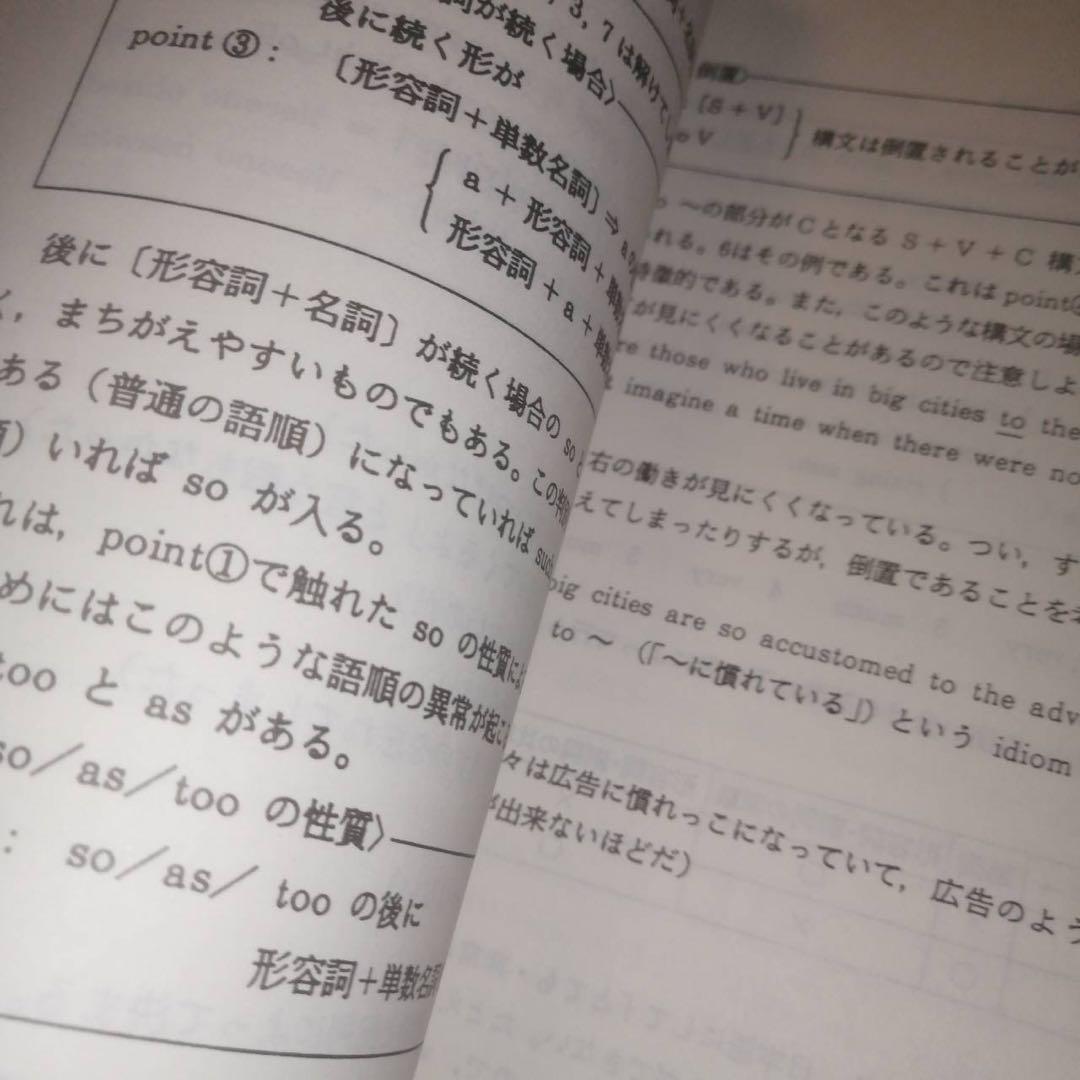 ，3，7は解けて
詞が続く場合〉
後に続く形が
point③： 〔形容詞＋単数名詞〕⇒
a ＋ 形容詞 ＋
形容詞 ＋ a ＋
後に〔形容詞＋名詞〕が続く場合の so
，まちがえやすいものでもある。この
ある（普通の語順）になっていれば
）いれば so が入る。
れは，point①で触れた so の性質に
めにはこのような語順の異常が起こ
too と as がある。
so／as／too の性質〉
： so／as／ too の後に
形容詞＋単数名詞
倒置〉
〔S＋V〕
V
構文は倒置されることが
～の部分がCとなる S＋V＋C 構文
れる。6はその例である。これは point
特徴的である。また，このような構文の場
が見にくくなることがあるので注意しよ
those who live in big cities to the
imagine a time when there were no
右の働きが見にくくなっている。つい，す
えてしまったりするが，倒置であることを考
big cities are so accustomed to the adv
to ～（「～に慣れている」）という idiom
々は広告に慣れっこになっていて，広告のよう
出来ないほどだ）